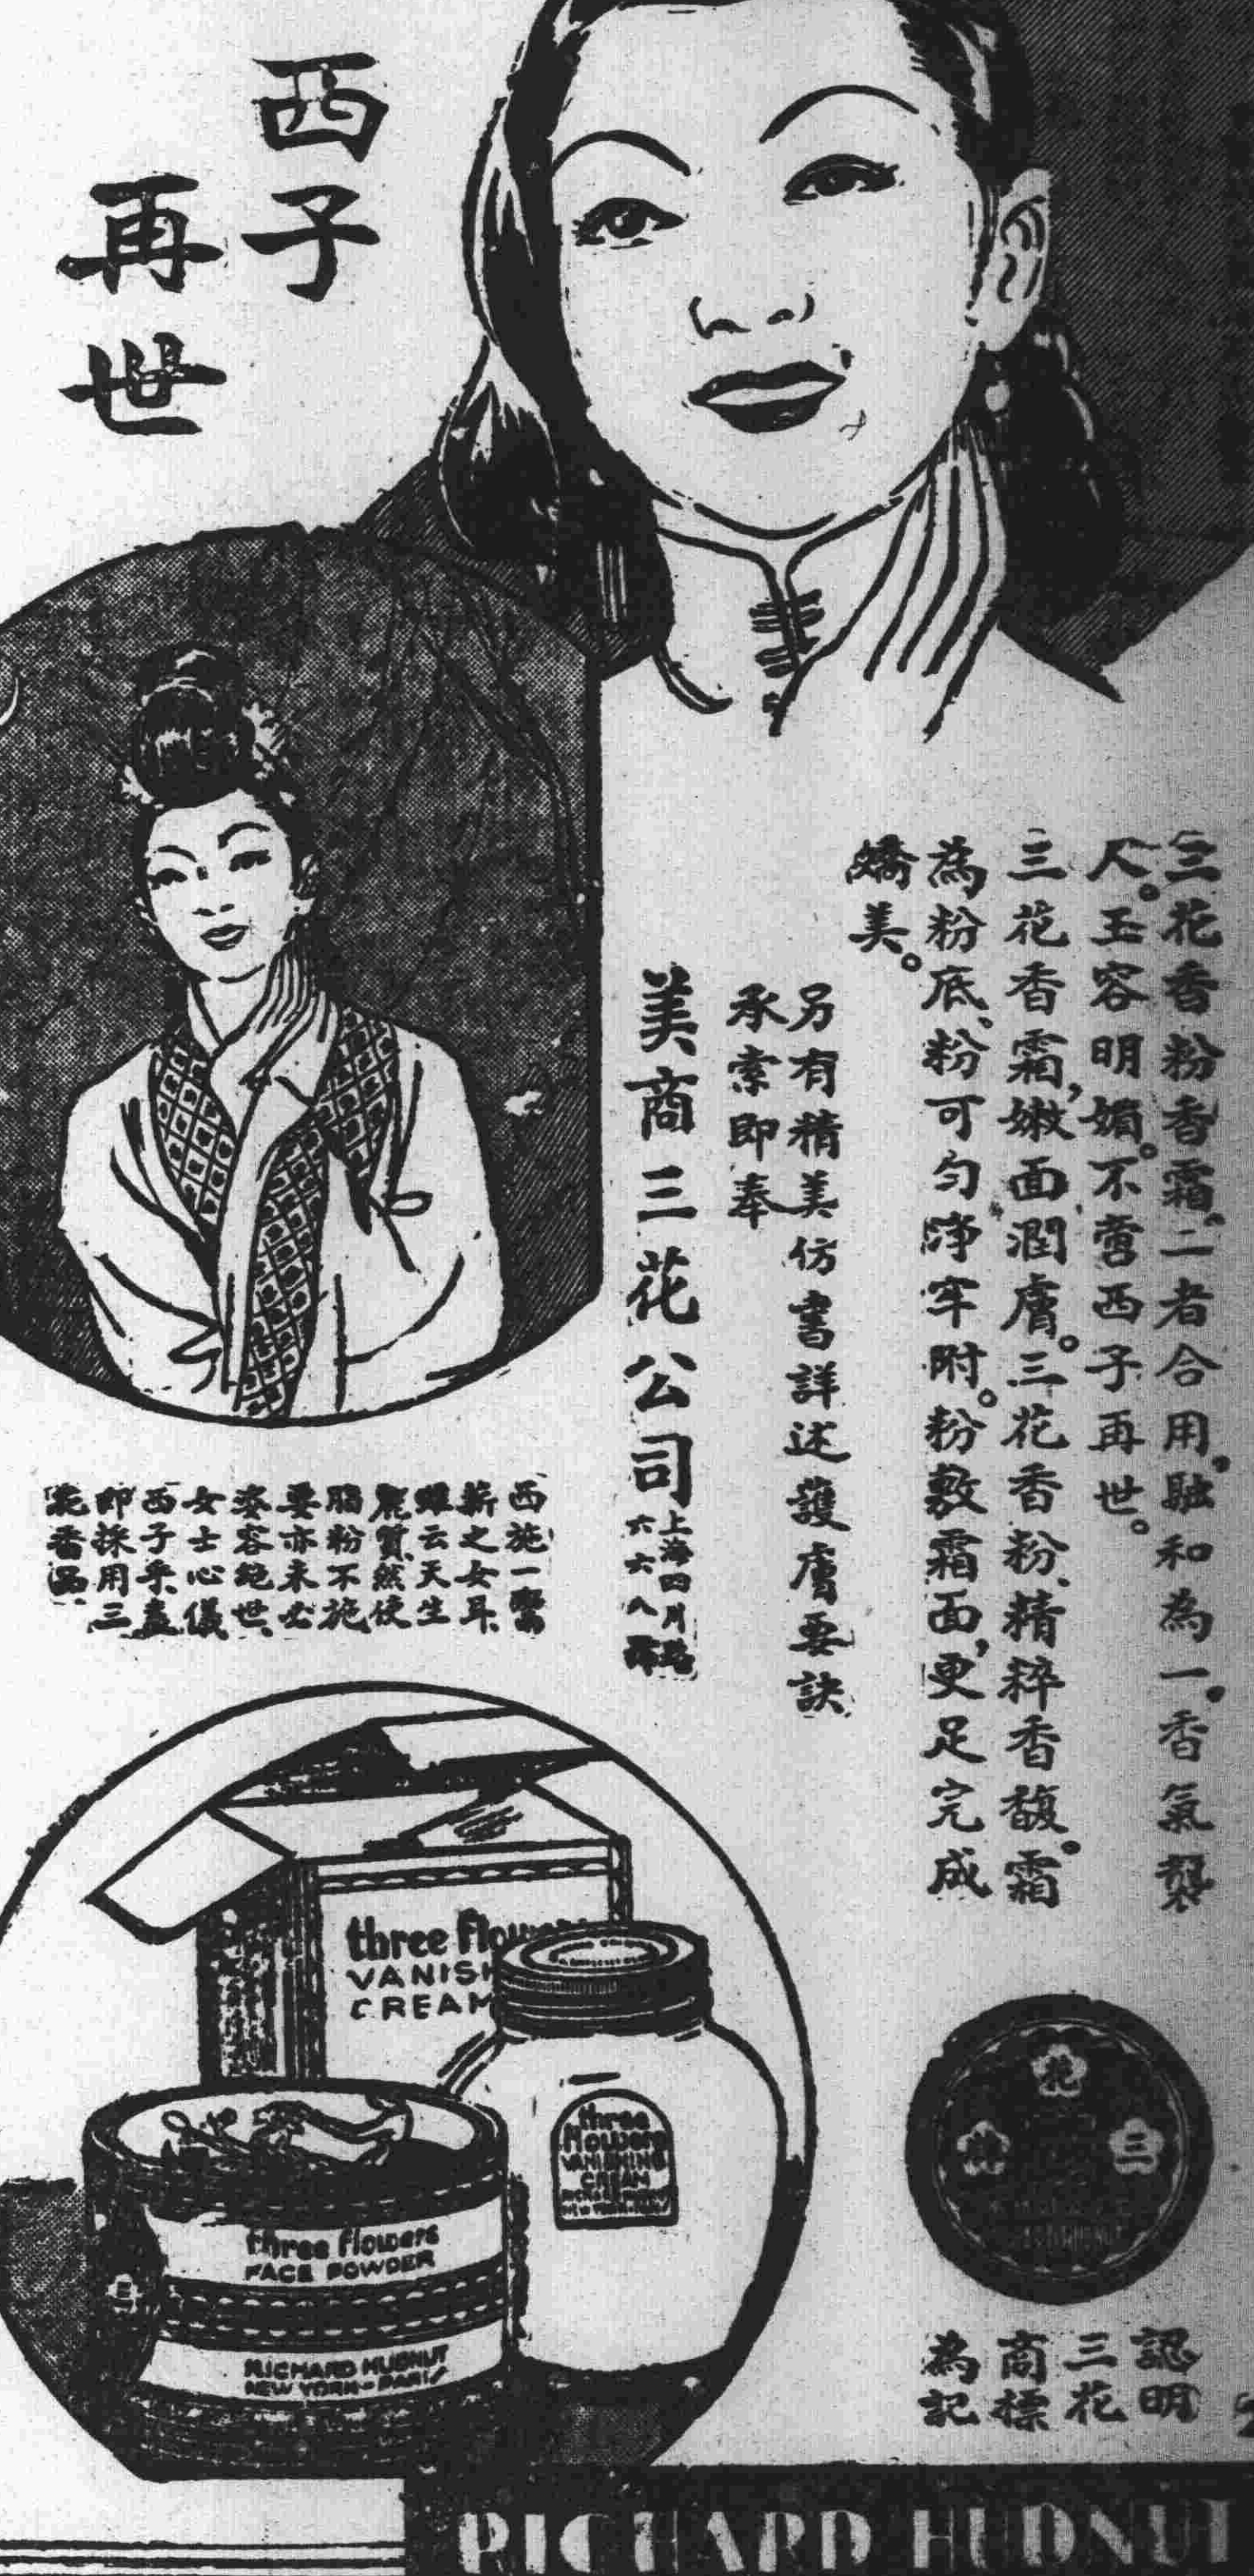 西子
再世
三花香粉香霜、二者合用，融和為一。香氣襲
人。玉容明媚。不啻西子再世。
三花香霜，嫩面潤膚。三花香粉、精粹香馥。霜
為粉底、粉可勻淨牢附。粉敷霜面，更足完成
嬌美。
另有精美仿書詳述護膚要訣
承索即奉
美商三花公司
上海四川路
六六八號
西施一鄉
薪之女耳
雖云天生
麗質然使
脂粉不施
要亦未必
姿容絕世
女士心儀
西子乎盍
即採用三
花香品
three flowers
VANISH
CREAM
three
flowers
VANISHING
CREAM
three flowers
FACE POWDER
RICHARD HUDNUT
NEW YORK - PARIS
三花牌
認明
三花
商標
為記
RICHARD HUDNUT